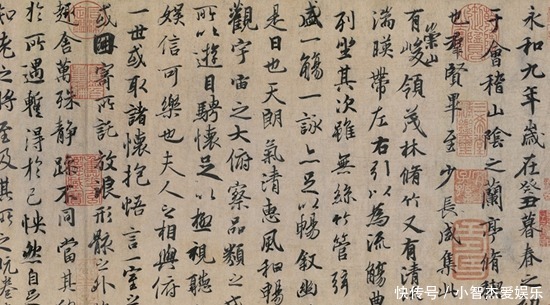 永和九年歲在癸丑暮春之
于會稽山陰之蘭亭脩
也羣賢畢至少長咸集此
有崇山峻領茂林脩竹又有清
湍暎帶左右引以為流觴曲
列坐其次雖無絲竹管弦
盛一觴一詠亦足以暢敘幽
是日也天朗氣清惠風和暢
觀宇宙之大俯察品類之
所以遊目騁懷足以極視聽
娛信可樂也夫人之相與俯
一世或取諸懷抱悟言一室
或因寄所託放浪形骸之外
趣舍萬殊靜躁不同當其
於所遇蹔得於己怏然自
知老之將至及其所之既惓
快传号/小智杰爱娱乐